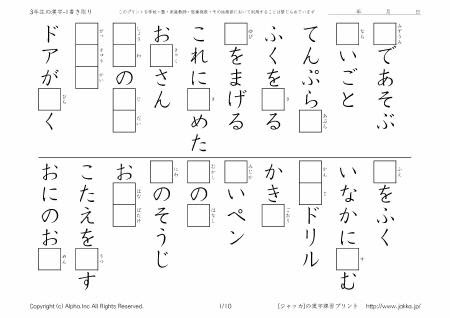 3年生の漢字-1書き取り
このプリントを学校・塾・家庭教師・医療機関・その他施設において利用することは禁じられています
年 月 日
みずうみ
であそぶ
なら
いごと
てんぷら
あぶら
ふくを
き
る
ゆび
をまげる
これに
き
めた
お
きゃく
さん
しょう
わ
の
じ
だい
がっ
かい
ドアが
ひら
く
ふえ
をふく
いなかに
す
む
かん
ドリル
かき
ごおり
みじか
いペン
むかし
の
はなし
にわ
のそうじ
お
はな
ばたけ
こたえを
うつ
す
おにのお
めん
Copyright (c) Alpha.Inc All Rights Reserved.
1/10
[ジャッカ]の漢字練習プリント http://www.jakka.jp/